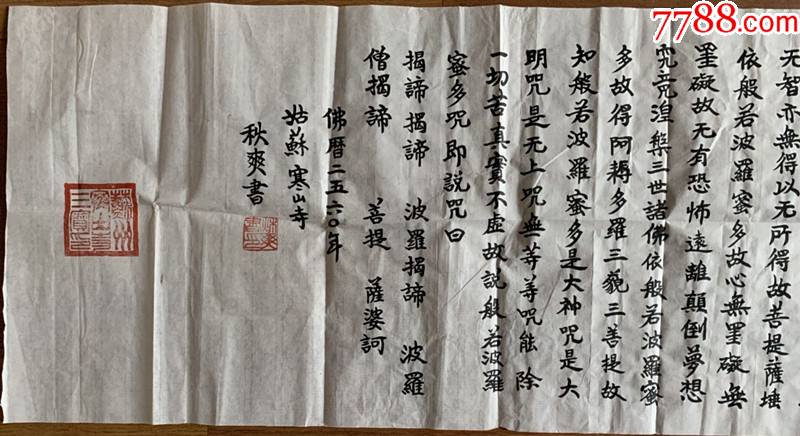 7788.com
无智亦無得以无所得故菩提薩埵
依般若波羅蜜多故心無罣礙無
罣礙故无有恐怖遠離顛倒夢想
究竟涅槃三世諸佛依般若波羅蜜
多故得阿耨多羅三藐三菩提故
知般若波羅蜜多是大神咒是大
明咒是无上咒無等等咒能除
一切苦真實不虛故説般若波羅
蜜多咒即説咒曰
揭諦揭諦 波羅揭諦 波羅
僧揭諦 菩提 薩婆訶
佛暦二五六〇年
姑蘇寒山寺
秋爽書